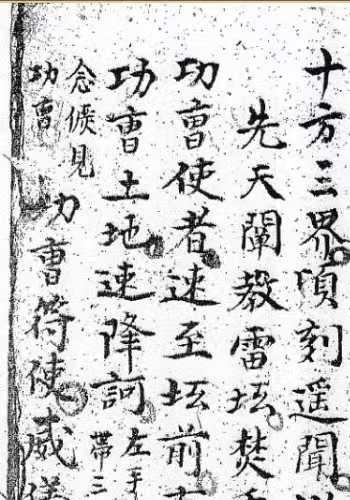 十方三界頃刻遥聞
先天闡教雷坛焚
功曺使者速至坛前
功曺土地速降訶左手
帶三
念候見
功曺
功曺符使威